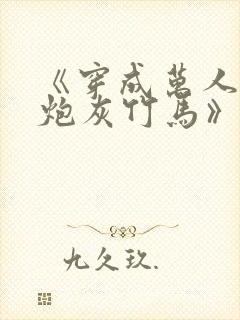 《穿成万人
炮灰竹马》
九久玖.